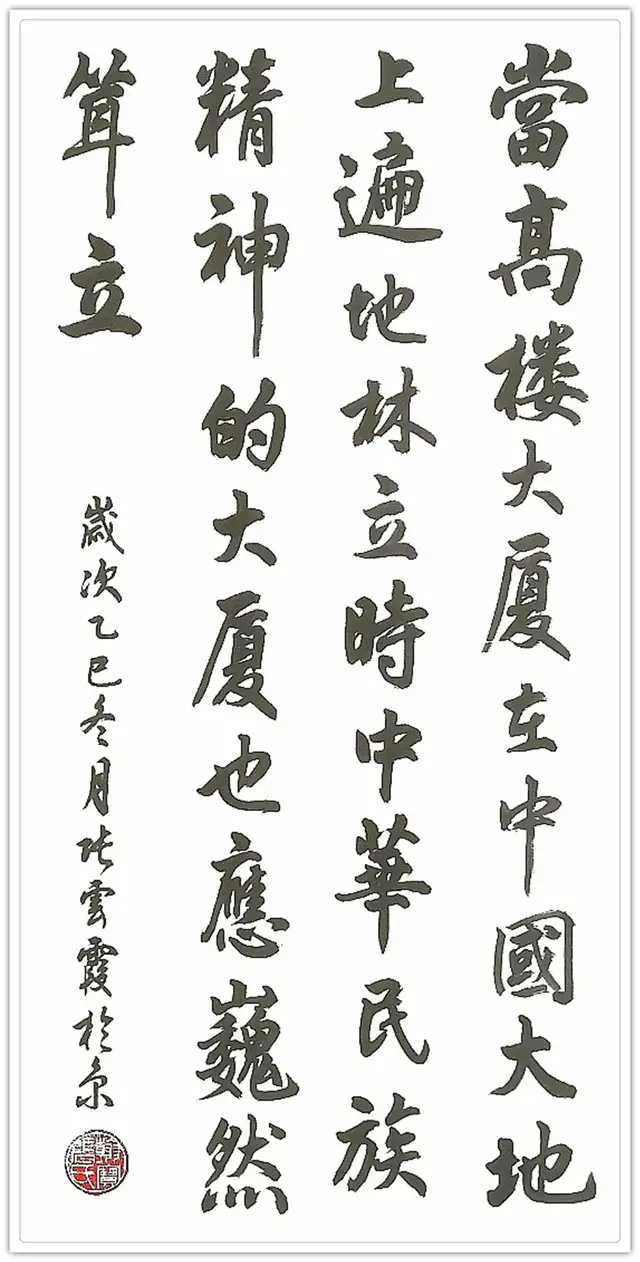 當高楼大厦在中國大地
上遍地林立時中華民族
精神的大厦也應巍然
耸立
歲次乙巳冬月张雲霞於京